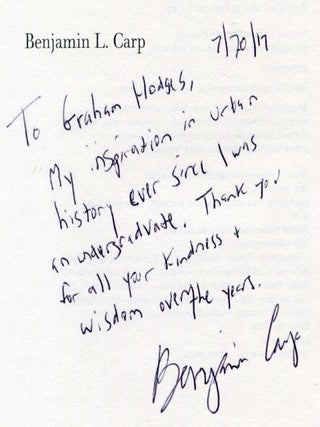 Benjamin L. Carp
7/20/17
To Graham Hodges,
My inspiration in urban
history ever since I was
an undergraduate. Thank you
for all your kindness +
wisdom over the years.
Benjamin Carp